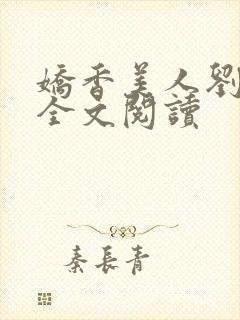 嬌香美人劉
全文閱讀
秦長青